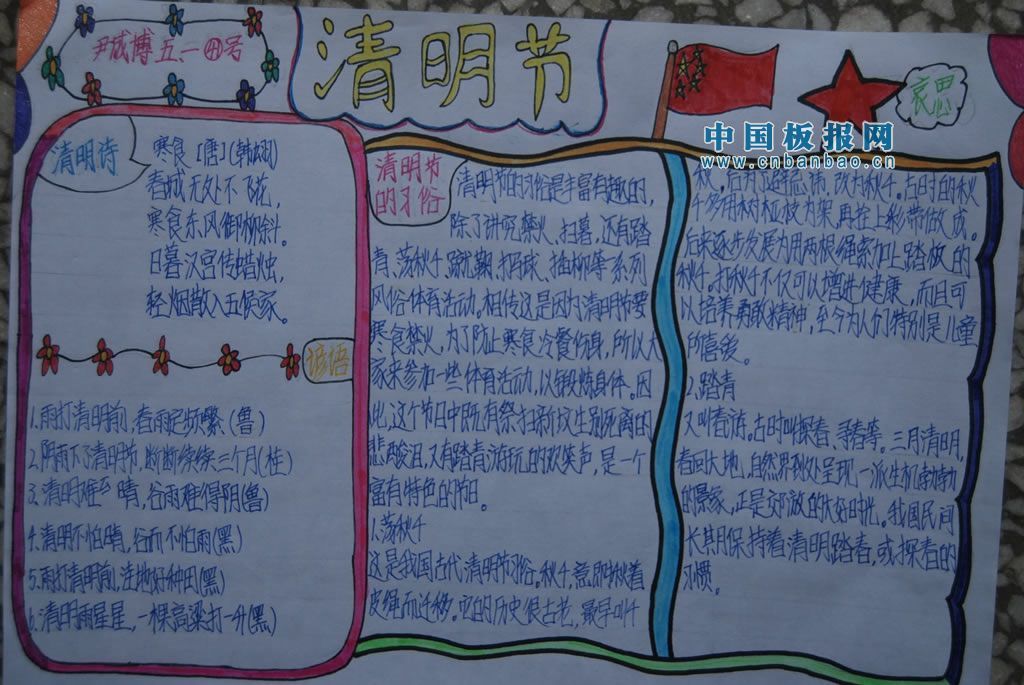 尹成博五、一④号
清明节
哀思
中国板报网
www.cnbanbao.cn
清明诗
寒食 [唐] (韩翃)
春城无处不飞花,
寒食东风御柳斜。
日暮汉宫传蜡烛,
轻烟散入五侯家。
谚语
1.雨打清明前,春雨定频繁(鲁)
2.阴雨下了清明节,断断续续三个月(桂)
3.清明难得晴,谷雨难得阴(鲁)
4.清明不怕晴,谷雨不怕雨(黑)
5.雨打清明前,洼地好种田(黑)
6.清明雨星星,一棵高粱打一升(黑)
清明节
的习俗
清明节的习俗是丰富有趣的,
除了讲究禁火、扫墓,还有踏
青、荡秋千、蹴鞠、打马球、插柳等系列
风俗体育活动。相传这是因为清明节要
寒食禁火,为了防止寒食冷餐伤身,所以大
家来参加一些体育活动,以锻炼身体。因
此,这个节日中既有祭扫新坟生别死离的
悲酸泪,又有踏青游玩的欢笑声,是一个
富有特色的节日。
1.荡秋千
这是我国古代清明节习俗。秋千,意即揪着
皮绳而迁移。它的历史很古老,最早叫千
秋。后为了避忌讳,改为秋千。古时的秋
千多用树桠枝为架,再拴上彩带做成。
后来逐步发展为用两根绳索加上踏板的
秋千。打秋千不仅可以增进健康,而且可
以培养勇敢精神,至今为人们特别是儿童
所喜爱。
2.踏青
又叫春游。古时叫探春、寻春等。三月清明,
春回大地,自然界到处呈现一派生机勃勃
的景象,正是郊游的大好时光。我国民间
长期保持着清明踏青,或探春的
习惯。